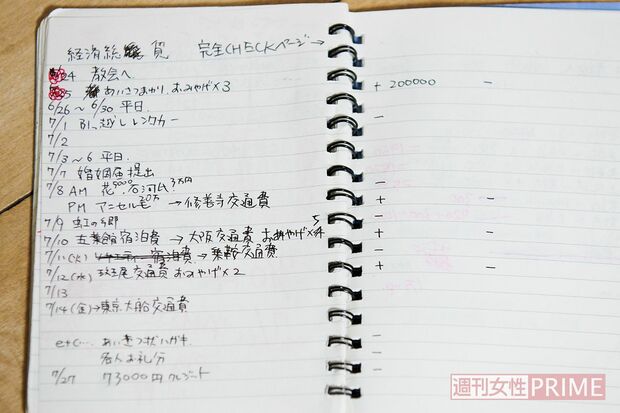 経済総 貿 完全CHECKページ→
24 教会へ
25 あいさつまわり、おみやげ×3 + 200000 −
6/26～6/30 平日.
7/1 引、越しレンタカー −
7/2
7/3～6 平日.
7/7 婚姻届提出
7/8 AM 花9000. 石河氏3万円 −
PM アニセル 20万 →修善寺交通費 + −
7/9 虹の郷 −
7/10 五葉館宿泊費 →大阪交通費 おみやげ× 5 + −
7/11(火) 宿泊費 → 乗鞍交通費 −
7/12(水) 交通費 おみやげ×2 + −
7/13
7/14(金)→東京大船交通費
etc… あいさつ状ハガキ −
名人お礼分 −
7/27 73000円クレジット −
週刊女性PRIME